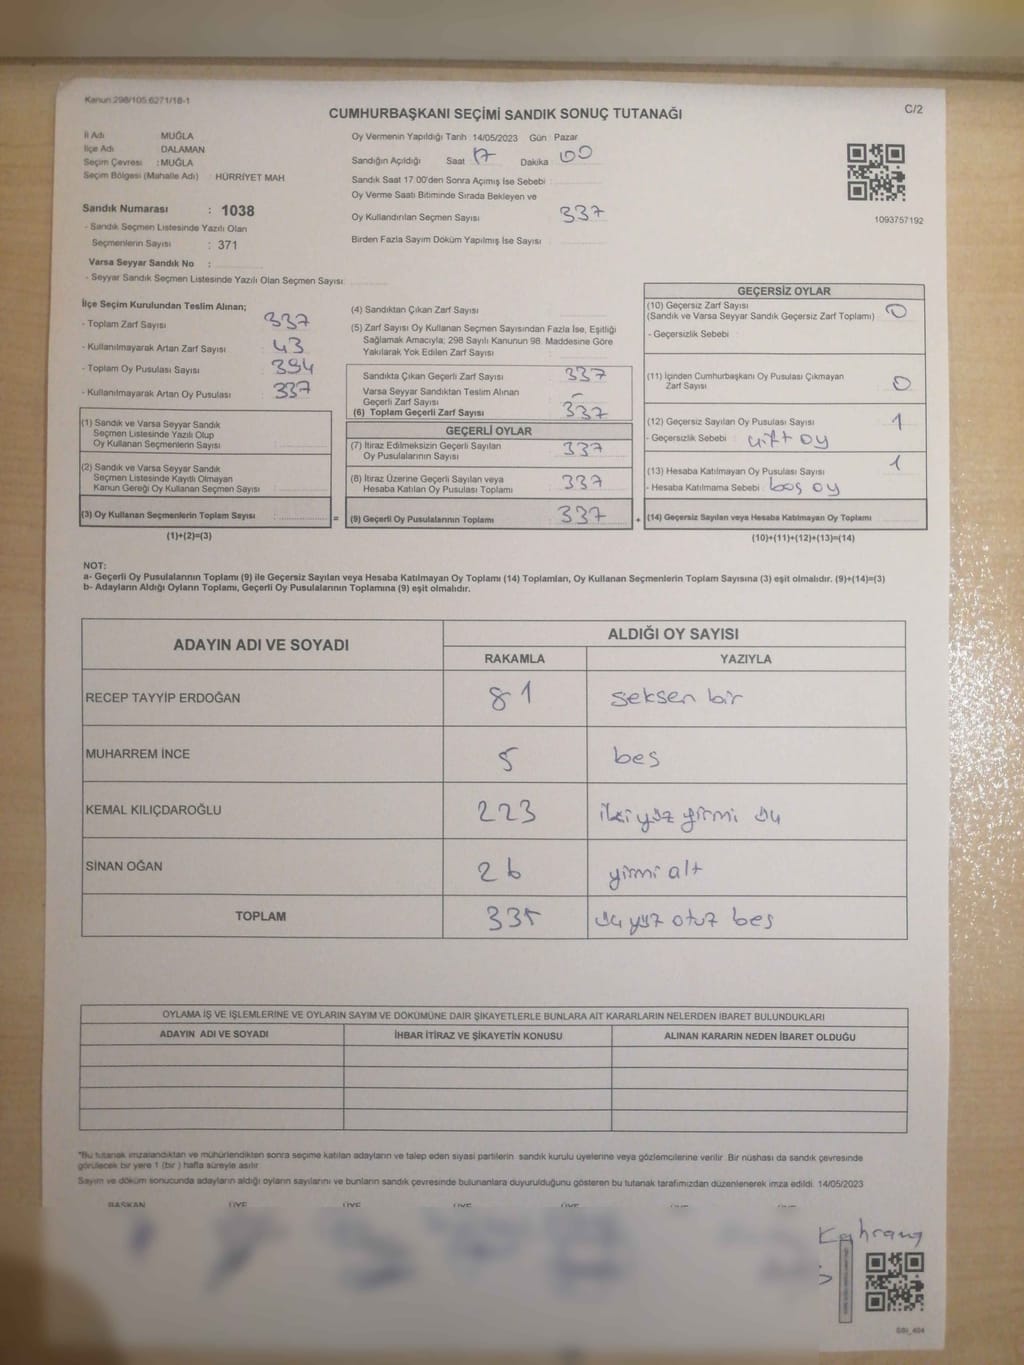 Kanun 298/105.6271/18-1
C/2
CUMHURBAŞKANI SEÇİMİ SANDIK SONUÇ TUTANAĞI
İl Adı MUĞLA
İlçe Adı DALAMAN
Seçim Çevresi : MUĞLA
Seçim Bölgesi (Mahalle Adı) HÜRRİYET MAH
Sandık Numarası : 1038
- Sandık Seçmen Listesinde Yazılı Olan
Seçmenlerin Sayısı : 371
Varsa Seyyar Sandık No :
- Seyyar Sandık Seçmen Listesinde Yazılı Olan Seçmen Sayısı:
Oy Vermenin Yapıldığı Tarih 14/05/2023 Gün Pazar
Sandığın Açıldığı Saat 17 Dakika 00
Sandık Saat 17:00'den Sonra Açımış İse Sebebi :
Oy Verme Saati Bitiminde Sırada Bekleyen ve
Oy Kullandırılan Seçmen Sayısı 337
Birden Fazla Sayım Döküm Yapılmış İse Sayısı
1093757192
İlçe Seçim Kurulundan Teslim Alınan;
- Toplam Zarf Sayısı 337
- Kullanılmayarak Artan Zarf Sayısı : 43
- Toplam Oy Pusulası Sayısı : 394
- Kullanılmayarak Artan Oy Pusulası : 337
(1) Sandık ve Varsa Seyyar Sandık
Seçmen Listesinde Yazılı Olup
Oy Kullanan Seçmenlerin Sayısı :
(2) Sandık ve Varsa Seyyar Sandık
Seçmen Listesinde Kayıtlı Olmayan
Kanun Gereği Oy Kullanan Seçmen Sayısı :
(3) Oy Kullanan Seçmenlerin Toplam Sayısı :
(1)+(2)=(3)
(4) Sandıktan Çıkan Zarf Sayısı
(5) Zarf Sayısı Oy Kullanan Seçmen Sayısından Fazla İse, Eşitliği
Sağlamak Amacıyla; 298 Sayılı Kanunun 98. Maddesine Göre
Yakılarak Yok Edilen Zarf Sayısı
Sandıkta Çıkan Geçerli Zarf Sayısı 337
Varsa Seyyar Sandıktan Teslim Alınan
Geçerli Zarf Sayısı -
(6) Toplam Geçerli Zarf Sayısı 337
GEÇERLİ OYLAR
(7) İtiraz Edilmeksizin Geçerli Sayılan
Oy Pusulalarının Sayısı 337
(8) İtiraz Üzerine Geçerli Sayılan veya
Hesaba Katılan Oy Pusulası Toplamı 337
= (9) Geçerli Oy Pusulalarının Toplamı 337 +
GEÇERSİZ OYLAR
(10) Geçersiz Zarf Sayısı
(Sandık ve Varsa Seyyar Sandık Geçersiz Zarf Toplamı) 0
- Geçersizlik Sebebi :
(11) İçinden Cumhurbaşkanı Oy Pusulası Çıkmayan
Zarf Sayısı 0
(12) Geçersiz Sayılan Oy Pusulası Sayısı 1
- Geçersizlik Sebebi : çift oy
(13) Hesaba Katılmayan Oy Pusulası Sayısı 1
- Hesaba Katılmama Sebebi : boş oy
(14) Geçersiz Sayılan veya Hesaba Katılmayan Oy Toplamı
(10)+(11)+(12)+(13)=(14)
NOT:
a- Geçerli Oy Pusulalarının Toplamı (9) ile Geçersiz Sayılan veya Hesaba Katılmayan Oy Toplamı (14) Toplamları, Oy Kullanan Seçmenlerin Toplam Sayısına (3) eşit olmalıdır. (9)+(14)=(3)
b- Adayların Aldığı Oyların Toplamı, Geçerli Oy Pusulalarının Toplamına (9) eşit olmalıdır.
ADAYIN ADI VE SOYADI ALDIĞI OY SAYISI
RAKAMLA YAZIYLA
RECEP TAYYİP ERDOĞAN 81 seksen bir
MUHARREM İNCE 5 beş
KEMAL KILIÇDAROĞLU 223 ikiyüz yirmi üç
SİNAN OĞAN 26 yirmi altı
TOPLAM 335 üçyüz otuz beş
OYLAMA İŞ VE İŞLEMLERİNE VE OYLARIN SAYIM VE DÖKÜMÜNE DAİR ŞİKAYETLERLE BUNLARA AİT KARARLARIN NELERDEN İBARET BULUNDUKLARI
ADAYIN ADI VE SOYADI İHBAR İTİRAZ VE ŞİKAYETİN KONUSU ALINAN KARARIN NEDEN İBARET OLDUĞU
*Bu tutanak imzalandıktan ve mühürlendikten sonra seçime katılan adayların ve talep eden siyasi partilerin sandık kurulu üyelerine veya gözlemcilerine verilir. Bir nüshası da sandık çevresinde
görülecek bir yere 1 (bir ) hafta süreyle asılır.
Sayım ve döküm sonucunda adayların aldığı oyların sayılarını ve bunların sandık çevresinde bulunanlara duyurulduğunu gösteren bu tutanak tarafımızdan düzenlenerek imza edildi. 14/05/2023
BAŞKAN ÜYE ÜYE ÜYE ÜYE ÜYE